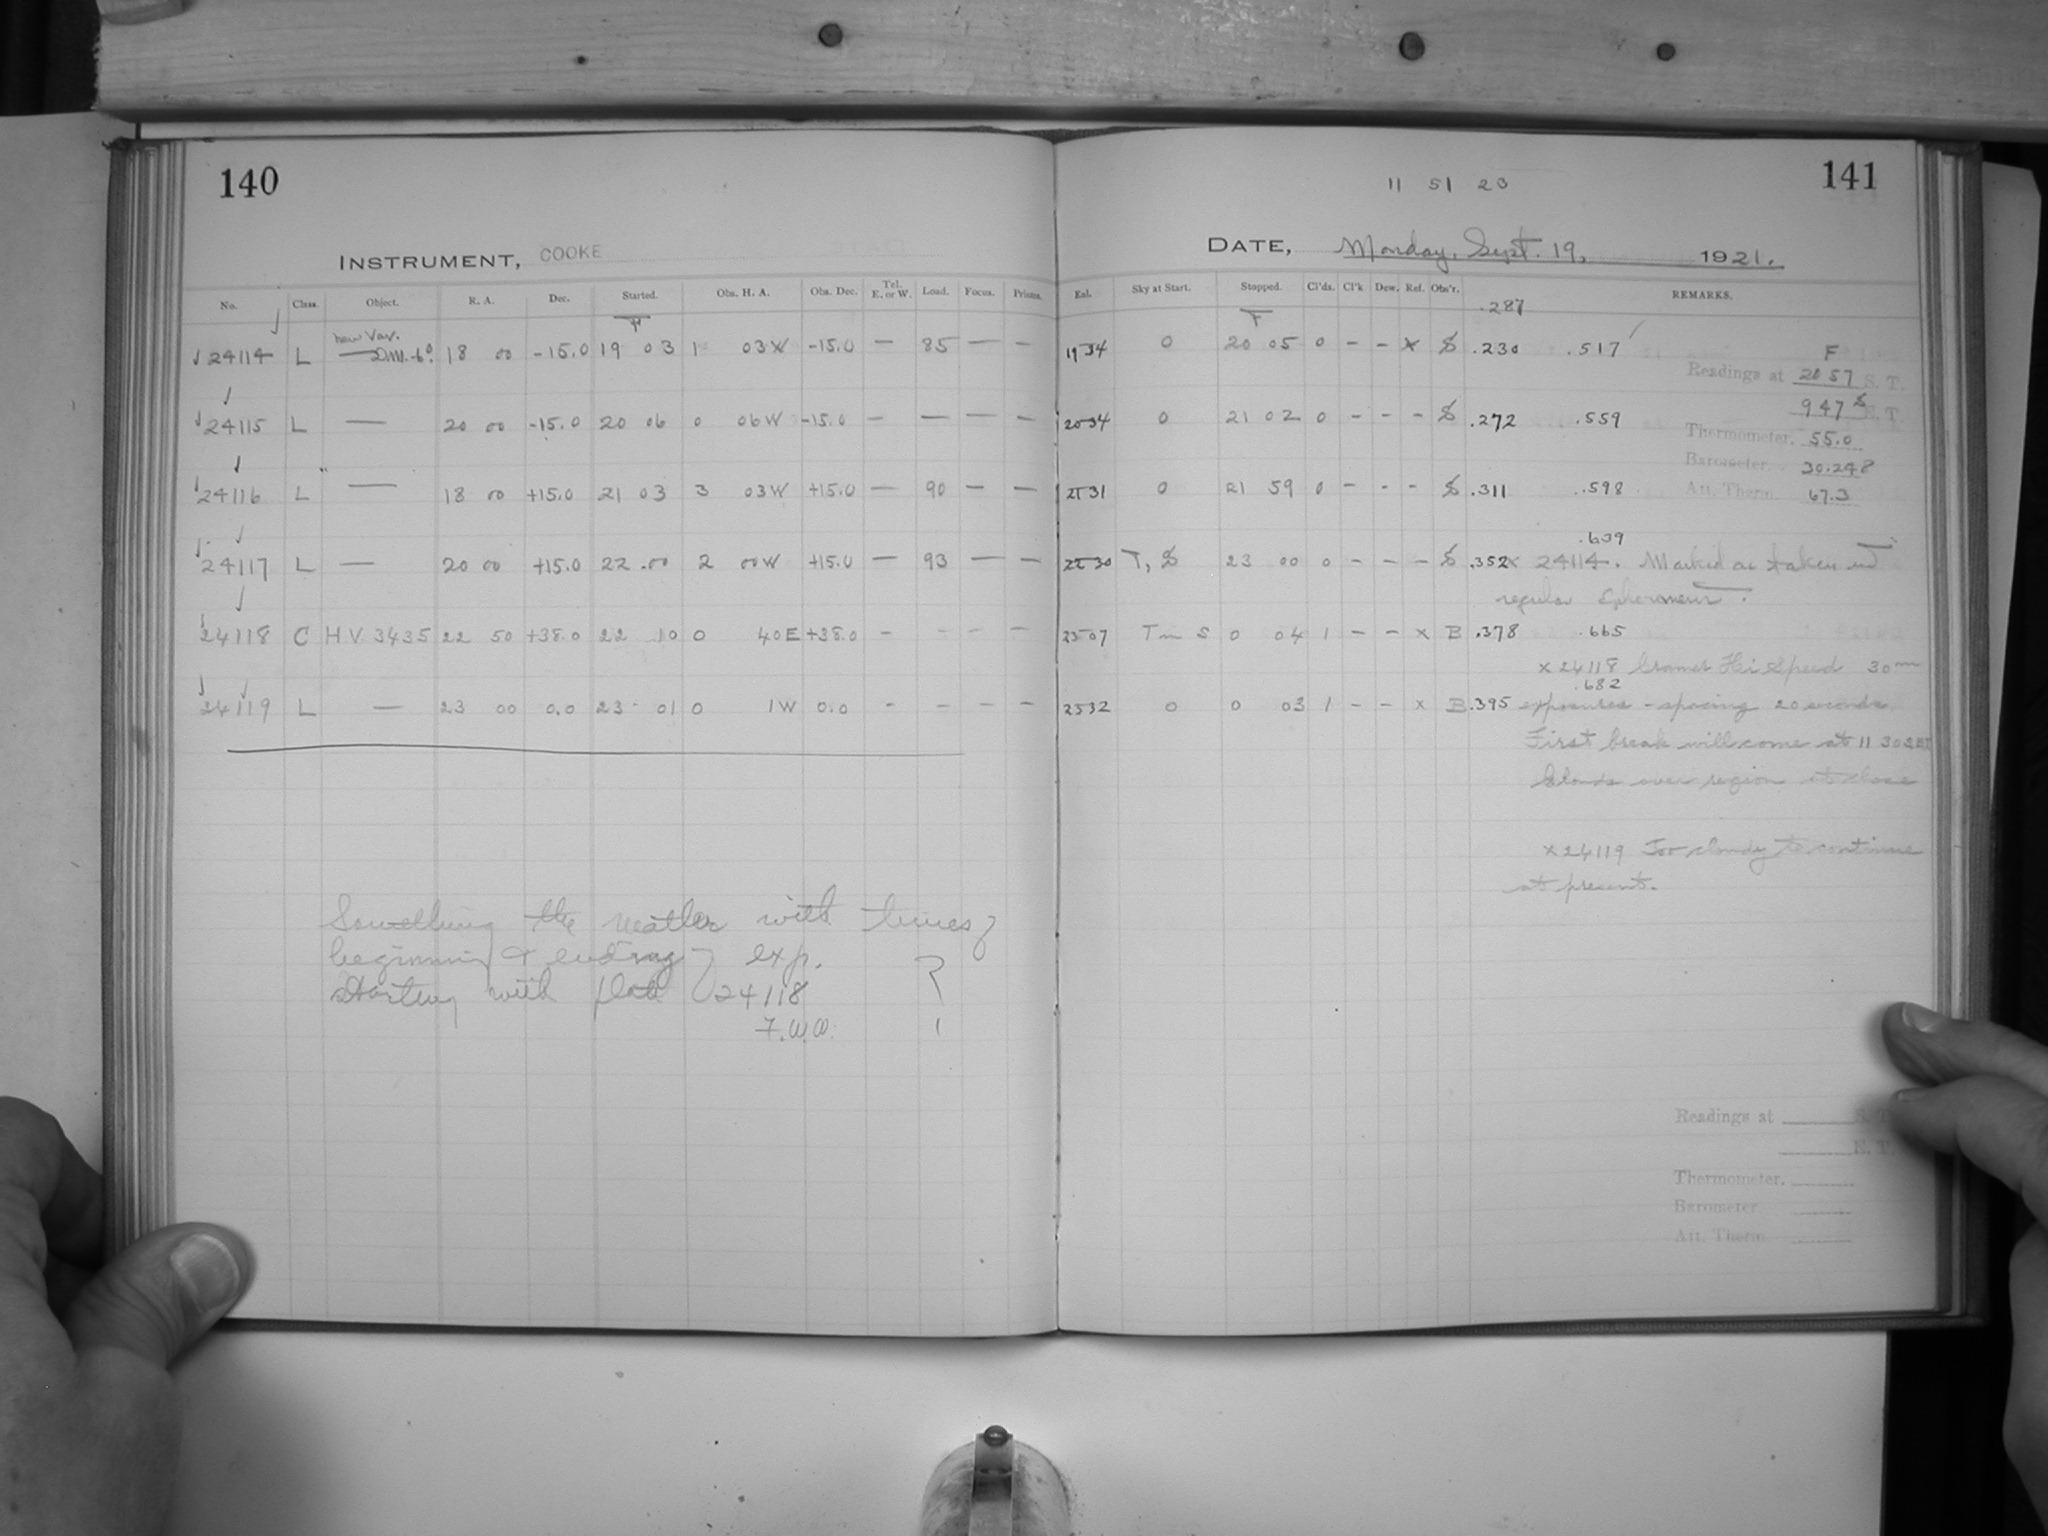 140
INSTRUMENT, COOKE
No. Class. Object. R. A. Dec. Started. Obs. H. A. Obs. Dec. Tel. E. or W. Load. Focus. Prisms.
new Var.
24114 L — DM.-6°. 18 00 -15.0 19 03 1 03W -15.0 — 85 — —
24115 L — 20 00 -15.0 20 06 0 06W -15.0 — — — —
24116 L — 18 00 +15.0 21 03 3 03W +15.0 — 90 — —
24117 L — 20 00 +15.0 22 00 2 00W +15.0 — 93 — —
24118 C H.V. 3435 22 50 +38.0 22 10 0 40E +38.0 - - - -
24119 L — 23 00 0.0 23 01 0 1W 0.0 - - - -
Something the matter with times of
beginning & ending of exp.
starting with plate 24118 ?
F.W.W.
141
11 51 23
DATE, Monday, Sept. 19, 1921.
Exl. Sky at Start. Stopped. Cl'ds. Cl'k Dew. Ref. Obs'r. REMARKS.
.287
1934 0 20 05 0 - - x S .230 .517
F
Readings at 20 57 S. T.
2034 0 21 02 0 - - - S .272 .559
9 47 E. T.
Thermometer. 55.0
Barometer. 30.248
2131 0 21 59 0 - - - S .311 .598
Att. Therm. 67.3
.639
2230 T, S 23 00 0 - - - S .352 x 24114. Marked as taken in
regular
2307 Tm S 0 04 1 - - x B .378 .665
x 24118 Cramer Hi Speed 30m
.682
2332 0 0 03 1 - - x B .395 exposures - spacing 20 seconds.
First break will come at 11 30
Clouds over region at close
x 24119 Too cloudy to continue
at present.
Readings at S. T.
E. T.
Thermometer.
Barometer
Att. Therm